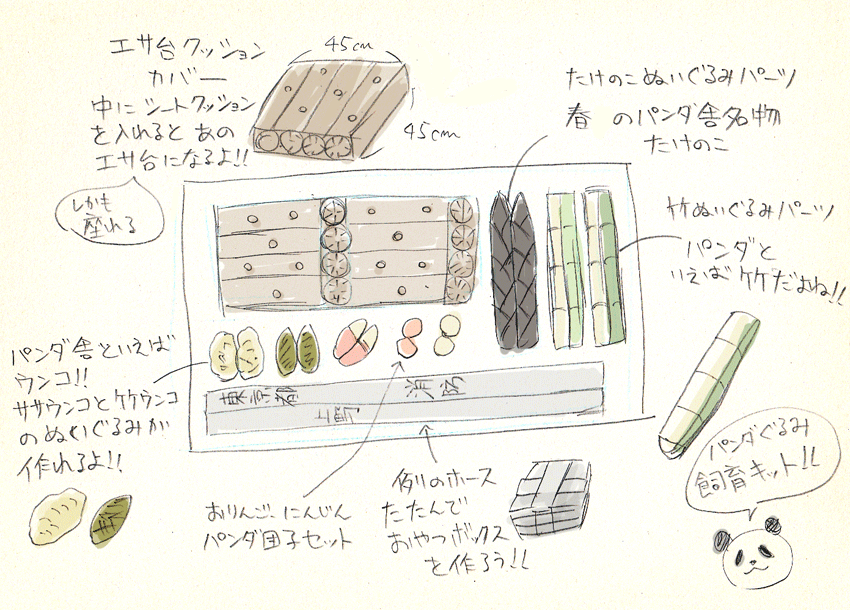 エサ台クッション
カバー
中にシートクッション
を入れると あの
エサ台になるよ!!
しかも
座れる
45cm
45cm
たけのこぬいぐるみパーツ
春 のパンダ舎名物
たけのこ
竹ぬいぐるみパーツ
パンダと
いえば竹だよね!!
パンダ舎といえば
ウンコ!!
ササウンコと竹ウンコ
のぬいぐるみが
作れるよ!!
東京都
消防
おりんご、にんじん
パンダ団子セット
例のホース
たたんで
おやつボックス
を作ろう!!
パンダぐるみ
飼育キット!!